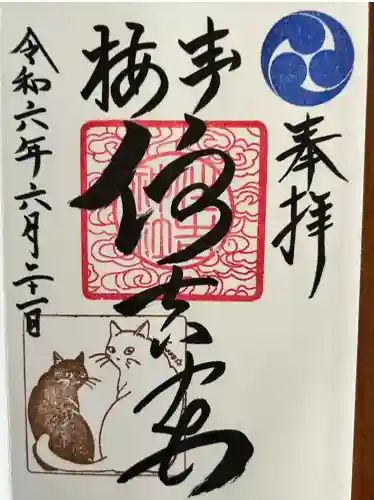 奉拝
青梅
住吉宮
令和六年六月二十一日